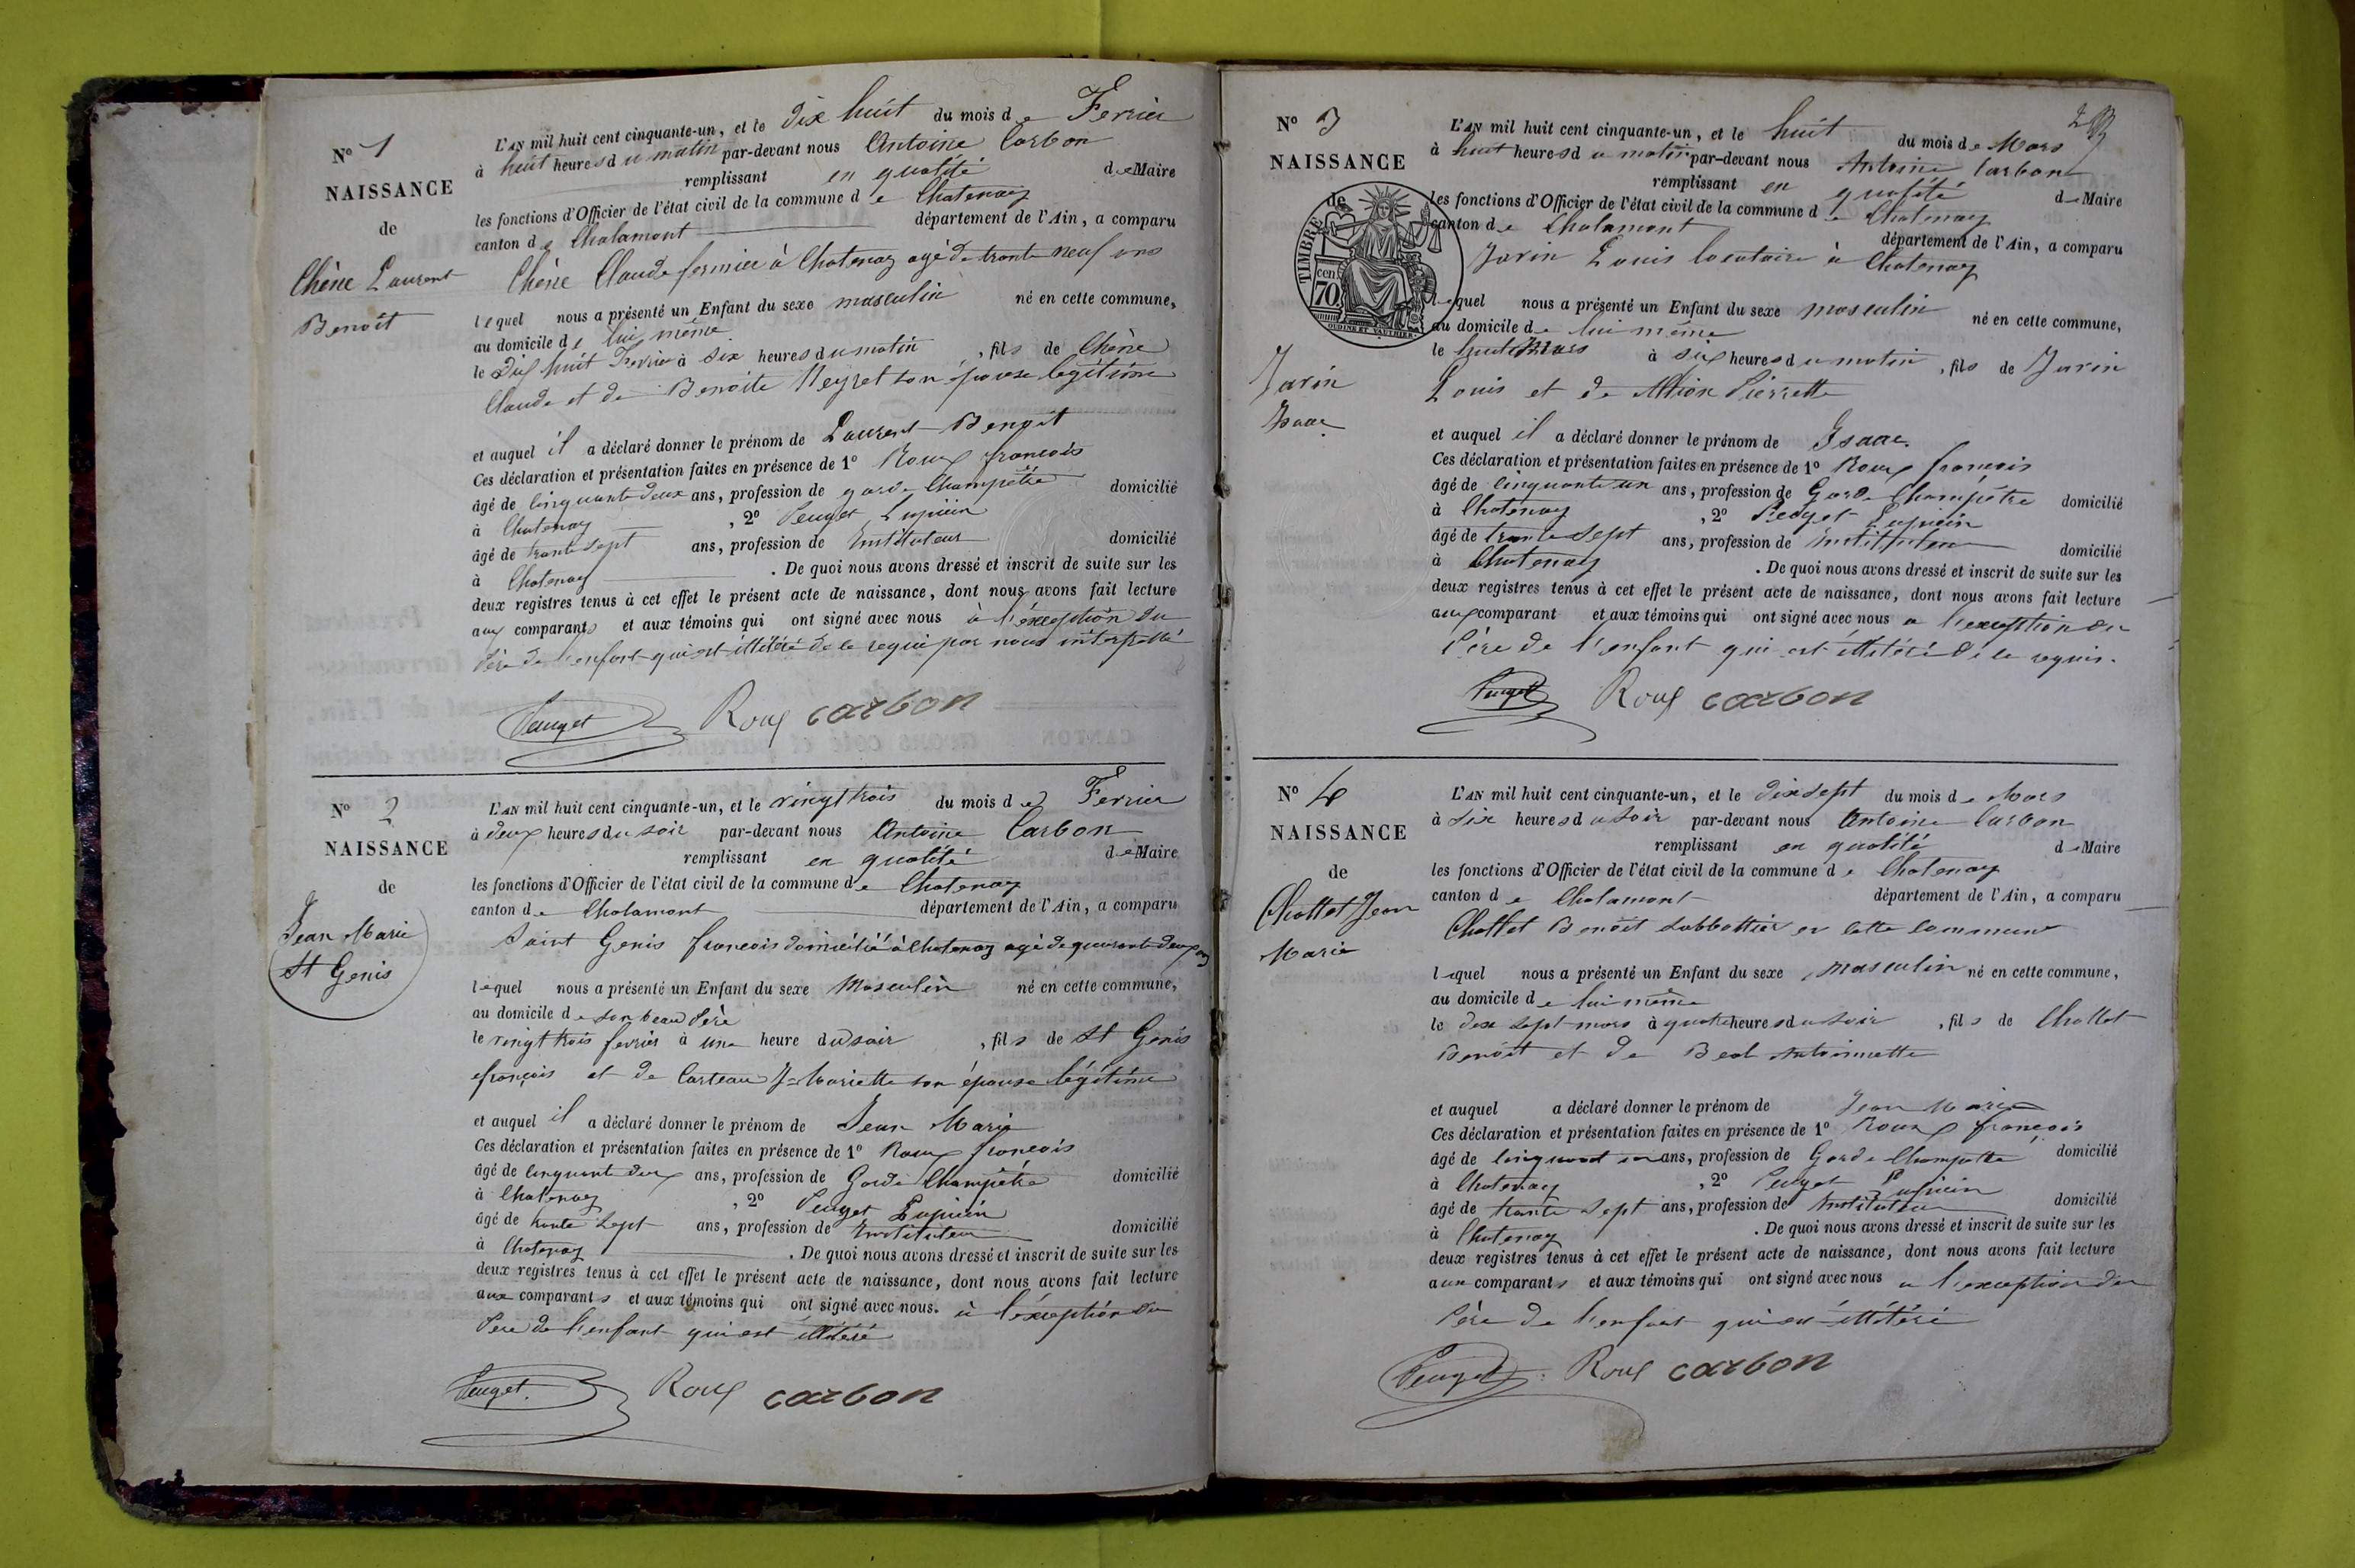 N° 1
NAISSANCE
de
Chêne Laurent
Benoît
L'AN mil huit cent cinquante-un, et le dix huit du mois de Fevrier
à huit heures du matin par-devant nous Antoine Carbon
remplissant en qualité de Maire
les fonctions d'Officier de l'état civil de la commune de Chatenay
canton de Chalamont département de l'Ain, a comparu
Chêne Claude fermier à Chatenay agé de trente neuf ans
lequel nous a présenté un Enfant du sexe masculin né en cette commune,
au domicile de lui même
le dix huit Fevrier à six heures du matin, fils de Chêne
Claude et de Benoite Neyret son épouse légitime
et auquel il a déclaré donner le prénom de Laurent Benoit
Ces déclaration et présentation faites en présence de 1° Roux francois
âgé de cinquante deux ans, profession de garde Champêtre domicilié
à Chatenay, 2° Peuget Lupicin
âgé de trente sept ans, profession de Instituteur domicilié
à Chatenay. De quoi nous avons dressé et inscrit de suite sur les
deux registres tenus à cet effet le présent acte de naissance, dont nous avons fait lecture
aux comparants et aux témoins qui ont signé avec nous à l'exception du
Père de l'enfant qui est illitéré de ce requi par nous interpellé
Peuget Roux carbon
N° 2
NAISSANCE
de
Jean Marie
St Genis
L'AN mil huit cent cinquante-un, et le vingt trois du mois de Fevrier
à deux heures du soir par-devant nous Antoine Carbon
remplissant en qualité de Maire
les fonctions d'Officier de l'état civil de la commune de Chatenay
canton de Chalamont département de l'Ain, a comparu
Saint Genis francois domicilié à Chatenay agé de quarante deux ans
lequel nous a présenté un Enfant du sexe Masculin né en cette commune,
au domicile de son beau Père
le vingt trois fevrier à une heure du soir, fils de St Genis
françois et de Carteau J=Mariette son épouse légitime
et auquel il a déclaré donner le prénom de Jean Marie
Ces déclaration et présentation faites en présence de 1° Roux francois
âgé de cinquante deux ans, profession de Garde Champêtre domicilié
à Chatenay, 2° Peuget Lupicin
âgé de trente sept ans, profession de Instituteur domicilié
à Chatenay. De quoi nous avons dressé et inscrit de suite sur les
deux registres tenus à cet effet le présent acte de naissance, dont nous avons fait lecture
aux comparants et aux témoins qui ont signé avec nous. à l'exception du
Pere de l'enfant qui est illitéré
Peuget. Roux carbon
N° 3
NAISSANCE
de
TIMBRE
cen.
70.
OUDINÉ ET VAUTHIER
Jarin
Isaac
L'AN mil huit cent cinquante-un, et le huit du mois de Mars
à huit heures du matin par-devant nous Antoine Carbon
remplissant en qualité de Maire
les fonctions d'Officier de l'état civil de la commune de Chatenay
canton de Chalamont département de l'Ain, a comparu
Jarin Louis locataire à Chatenay
lequel nous a présenté un Enfant du sexe masculin né en cette commune,
au domicile de lui même
le huit Mars à six heures du matin, fils de Jarin
Louis et de Pierrette
et auquel il a déclaré donner le prénom de Isaac.
Ces déclaration et présentation faites en présence de 1° Roux francois
âgé de cinquante un ans, profession de Garde Champêtre domicilié
à Chatenay, 2° Peuget Lupicin
âgé de trente sept ans, profession de instituteur domicilié
à Chatenay. De quoi nous avons dressé et inscrit de suite sur les
deux registres tenus à cet effet le présent acte de naissance, dont nous avons fait lecture
aux comparant et aux témoins qui ont signé avec nous a l'exception du
Père de l'enfant qui est illitéré de ce requis.
Peuget Roux carbon
N° 4
NAISSANCE
de
Chollet Jean
Marie
L'AN mil huit cent cinquante-un, et le dix sept du mois de Mars
à six heures du soir par-devant nous Antoine Carbon
remplissant en qualité de Maire
les fonctions d'Officier de l'état civil de la commune de Chatenay
canton de Chalamont département de l'Ain, a comparu
Chollet Benoit sabbottier en cette commune
lequel nous a présenté un Enfant du sexe masculin né en cette commune,
au domicile de lui même
le dix sept mars à quatre heures du soir, fils de Chollet
Benoit et de Antoinette
et auquel a déclaré donner le prénom de Jean Marie
Ces déclaration et présentation faites en présence de 1° Roux françois
âgé de cinquant un ans, profession de Garde Champetre domicilié
à Chatenay, 2° Peuget Lupicin
âgé de trente sept ans, profession de Instituteur domicilié
à Chatenay. De quoi nous avons dressé et inscrit de suite sur les
deux registres tenus à cet effet le présent acte de naissance, dont nous avons fait lecture
aux comparants et aux témoins qui ont signé avec nous a l'exception du
Père de l'enfant qui est illitéré
Peuget Roux carbon